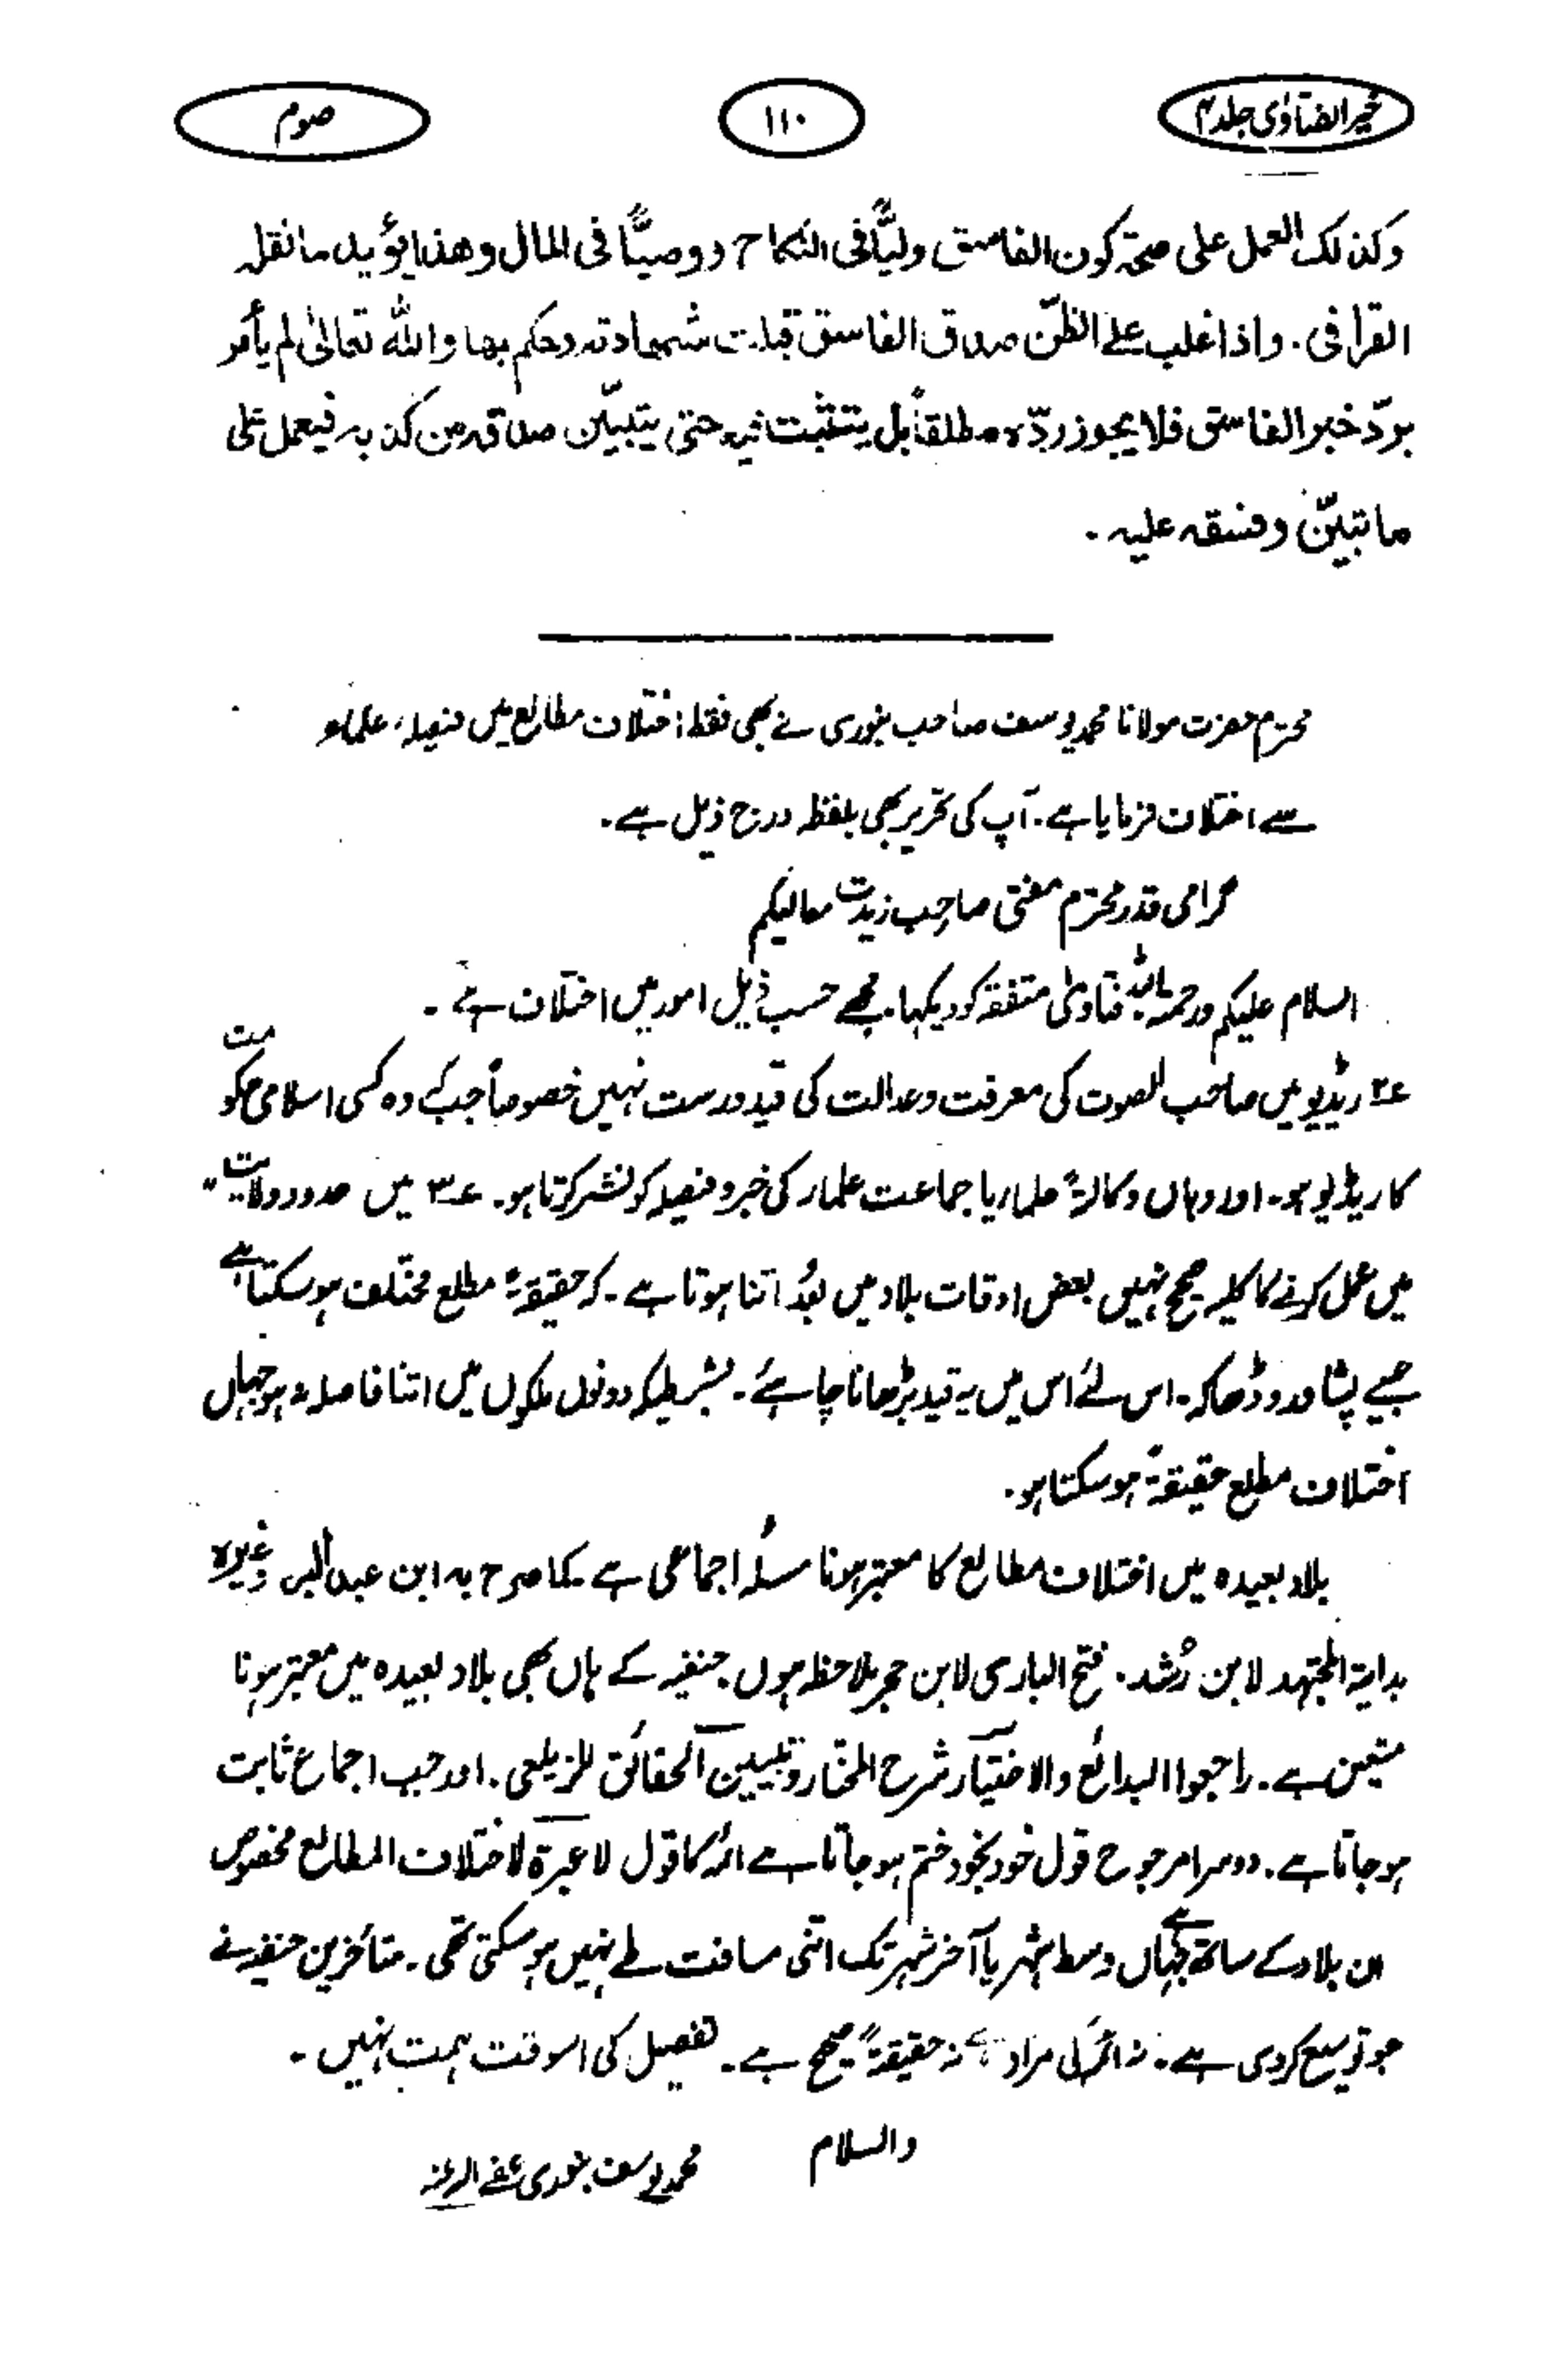 خیر الفتاویٰ جلد ۴
۱۱۰
صوم
وکذلک العمل علی صحۃ کون الفاسق ولیًّا فی النکاح ووصیًّا فی المال وھذا یؤید ما نقلہ
القرافی. واذا غلب علی الظنّ صدق الفاسق قبلت شھادتہ وحکم بھا واللہ تعالیٰ لم یأمر
بردّ خبر الفاسق فلا یجوز ردّہ مطلقاً بل یتثبت فیہ حتیٰ یتبیّن صدقہ من کذبہ فیعمل علی
ما تبیّن وفسقہ علیہ۔
محترم حضرت مولانا محمد یوسف صاحب بنوری نے بھی فقط اختلاف مطالع میں فیصلہ علماء
سے اختلاف فرمایا ہے۔ آپ کی تحریر بھی بلفظہ درج ذیل ہے۔
گرامی قدر محترم مفتی صاحب زیدت معالیکم
السلام علیکم ورحمۃ اللہ فتاویٰ متفقہ کو دیکھا۔ مجھے حسب ذیل امور میں اختلاف ہے۔
۲؎ ریڈیو میں صاحب الصوت کی معرفت وعدالت کی قید درست نہیں خصوصاً جبکہ وہ کسی اسلامی حکومت
کا ریڈیو ہو۔ اور وہاں وکالۃً علماء یا جماعت علماء کی خبر و فیصلہ کو نشر کرتا ہو۔ ۳؎ میں حدود ولایت
میں عمل کرنے کا کلیہ صحیح نہیں بعض اوقات بلاد میں بُعد اتنا ہوتا ہے۔ کہ حقیقۃً مطلع مختلف ہو سکتا ہے
جیسے پشاور و ڈھاکہ۔ اس لئے اس میں یہ قید بڑھانا چاہئے۔ بشرطیکہ دونوں ملکوں میں اتنا فاصلہ نہ ہو جہاں
اختلاف مطلع حقیقۃً ہو سکتا ہو۔
بلاد بعیدہ میں اختلاف مطالع کا معتبر ہونا مسئلہ اجماعی ہے۔ کما صرح بہ ابن عبد البر وغیرہ
بدایۃ المجتہد لابن رُشد۔ فتح الباری لابن حجر ملاحظہ ہوں۔ حنفیہ کے ہاں بھی بلاد بعیدہ میں معتبر ہونا
متعین ہے۔ راجعوا البدائع والاختیار شرح المختار وتبیین الحقائق للزیلعی۔ اور جب اجماع ثابت
ہو جاتا ہے۔ دوسرا مرجوح قول خود بخود ختم ہو جاتا ہے ائمہ کا قول لا عبرۃ لاختلاف المطالع مخصوص
ان بلاد کے ساتھ ہے کہ جہاں وسط شہر یا آخر شہر تک اتنی مسافت طے نہیں ہو سکتی تھی۔ متأخرین حنفیہ نے
جو توسیع کر دی ہے۔ نہ ائمہ کی مراد ہے نہ حقیقۃً صحیح ہے۔ تفصیل کی اس وقت ہمت نہیں۔
والسلام
محمد یوسف بنوری عفا اللہ عنہ